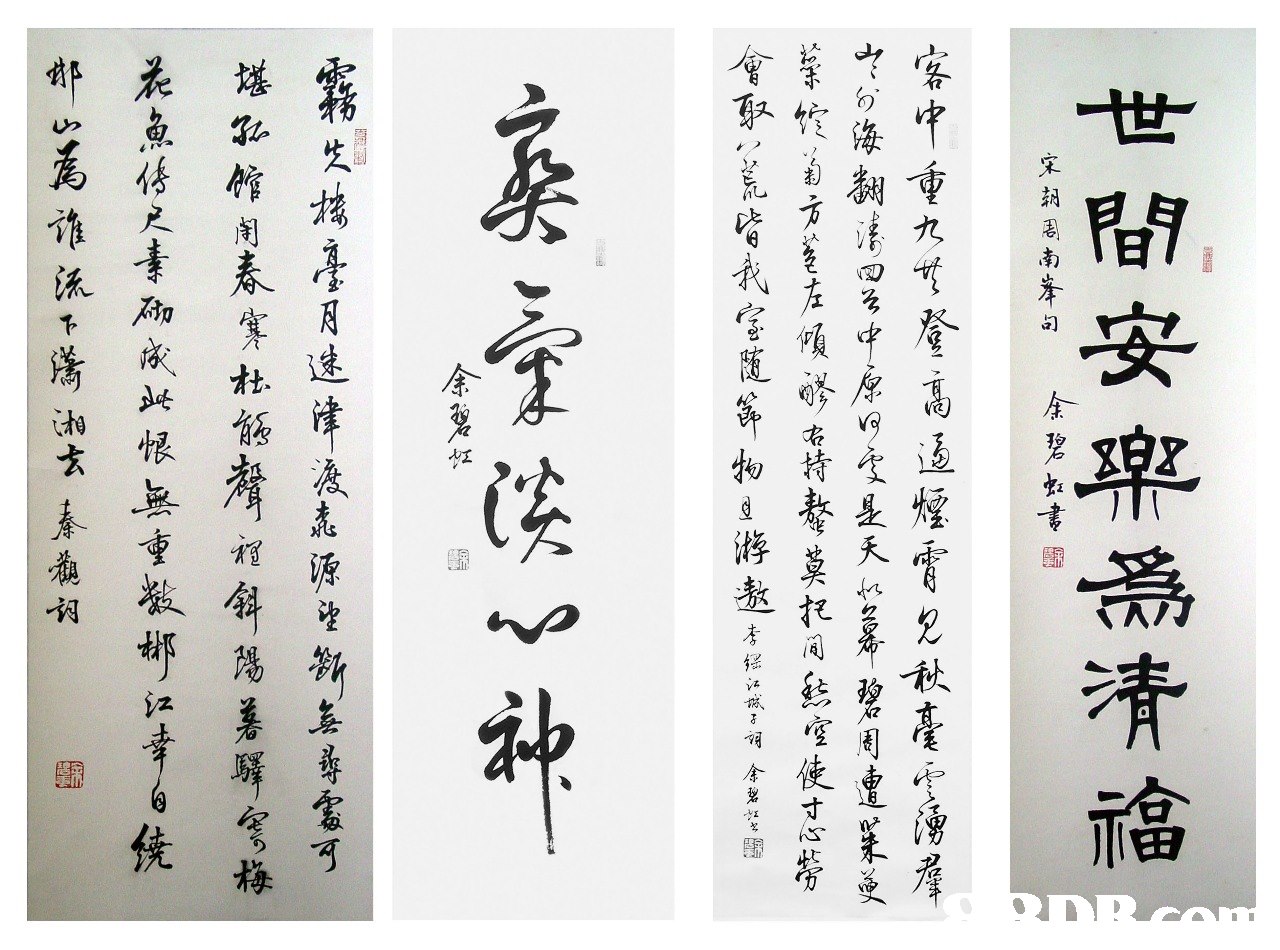 世間安樂爲清福
宋朝周南峯句 余碧虹書
客中重九共登高逼煙霄見秋毫雲湧羣
山山外海翻濤回首中原何處是天似幕碧周遭茱萸
蕊綻菊方苞左傾醪右持螯莫把閒愁空使寸心勞
會取八荒皆我室隨節物且游遨 李綱江城子詞 余碧虹書
爽氣淡心神
余碧虹
霧失樓臺月迷津渡桃源望斷無尋處可
堪孤館閉春寒杜鵑聲裡斜陽暮驛寄梅
花魚傳尺素砌成此恨無重數郴江幸自繞
郴山為誰流下瀟湘去 秦觀詞